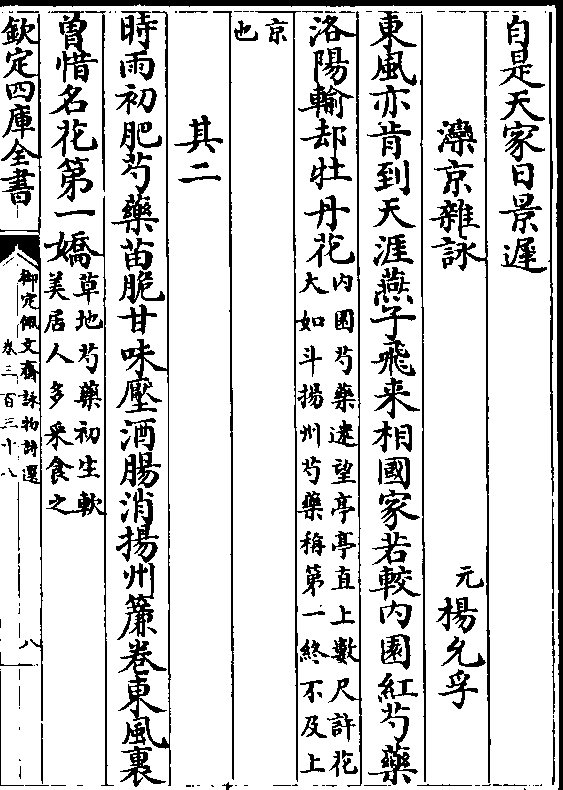 自是天家日景遲
灤京雜詠
元楊允孚
東風亦肯到天涯燕子飛来相國家若較内園紅芍藥
洛陽輸却牡丹花内園芍藥迷望亭亭直上數尺許花
大如斗揚州芍藥稱第一終不及上
京
也
其二
時雨初肥芍藥苗脆甘味壓酒腸消揚州簾卷東風裏
曾惜名花第一嬌草地芍藥初生軟
美居人多采食之
欽定四庫全書
御定佩文齋詠物詩選
卷三百三十八
八